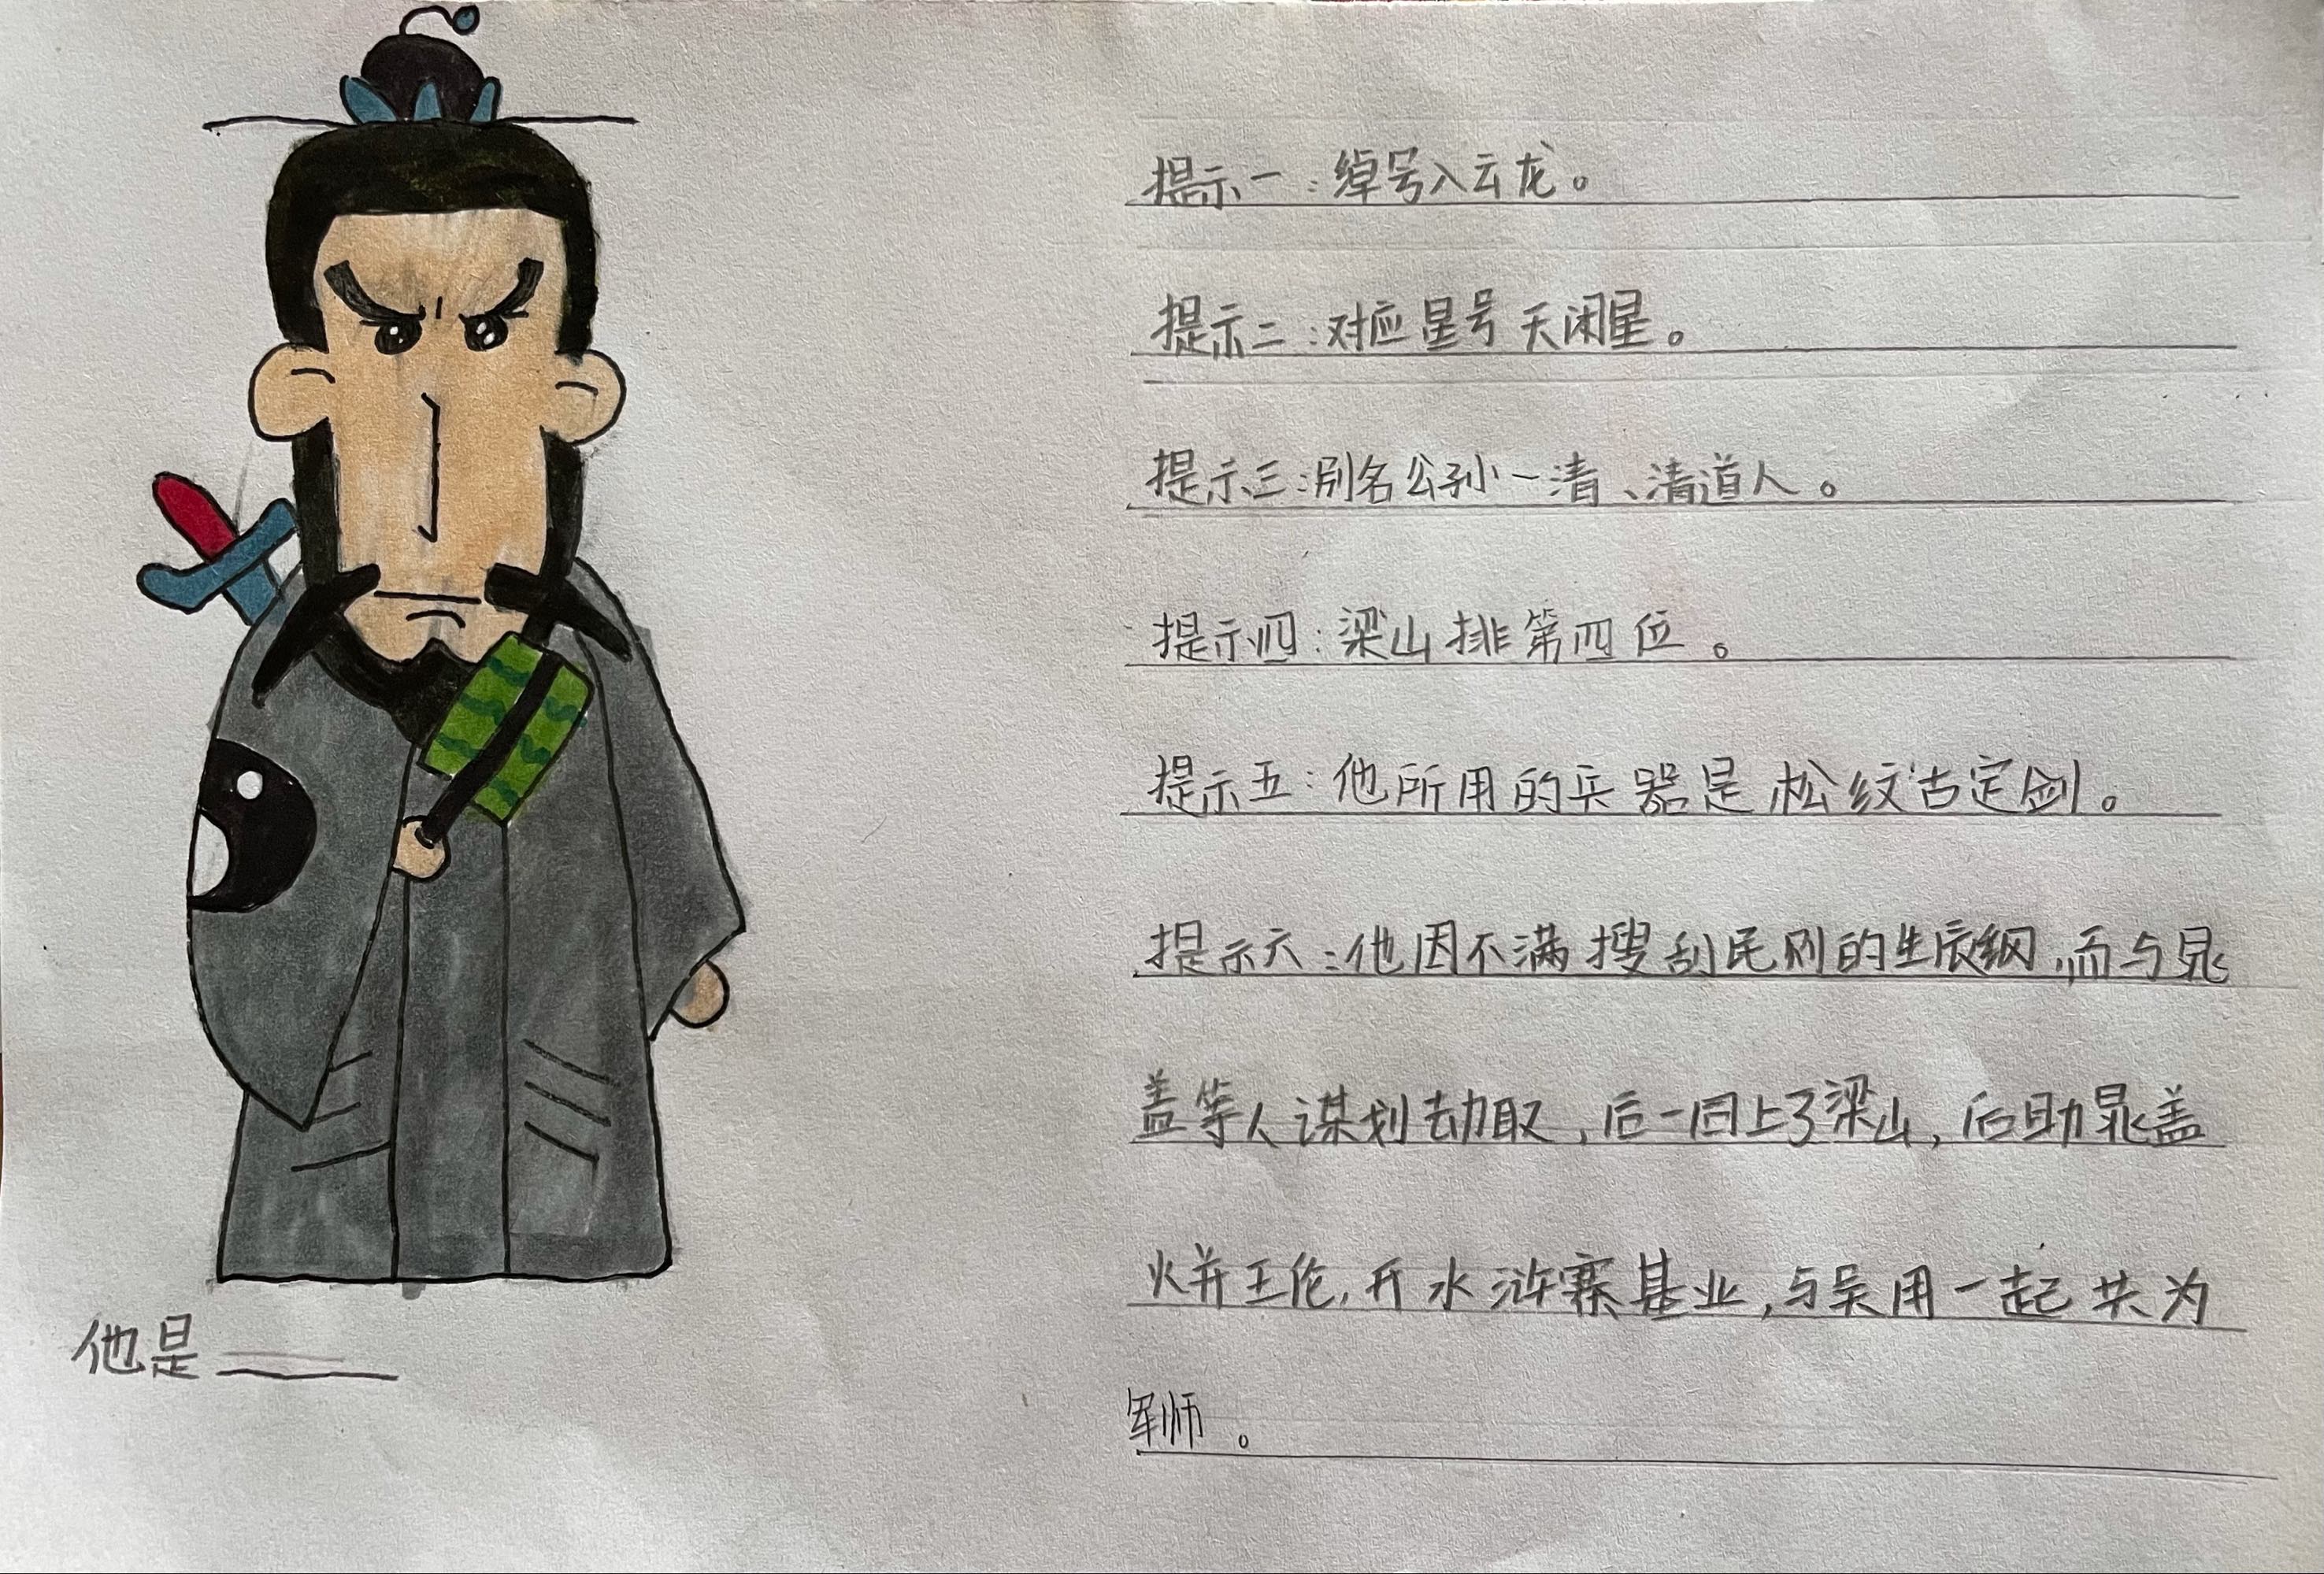 提示一：绰号入云龙。
提示二：对应星号天闲星。
提示三：别名公孙一清、清道人。
提示四：梁山排第四位。
提示五：他所用的兵器是松纹古定剑。
提示六：他因不满搜刮民财的生辰纲，而与晁
盖等人谋划劫取，后一同上了梁山，后助晁盖
火并王伦，开水浒寨基业，与吴用一起共为
军师。
他是